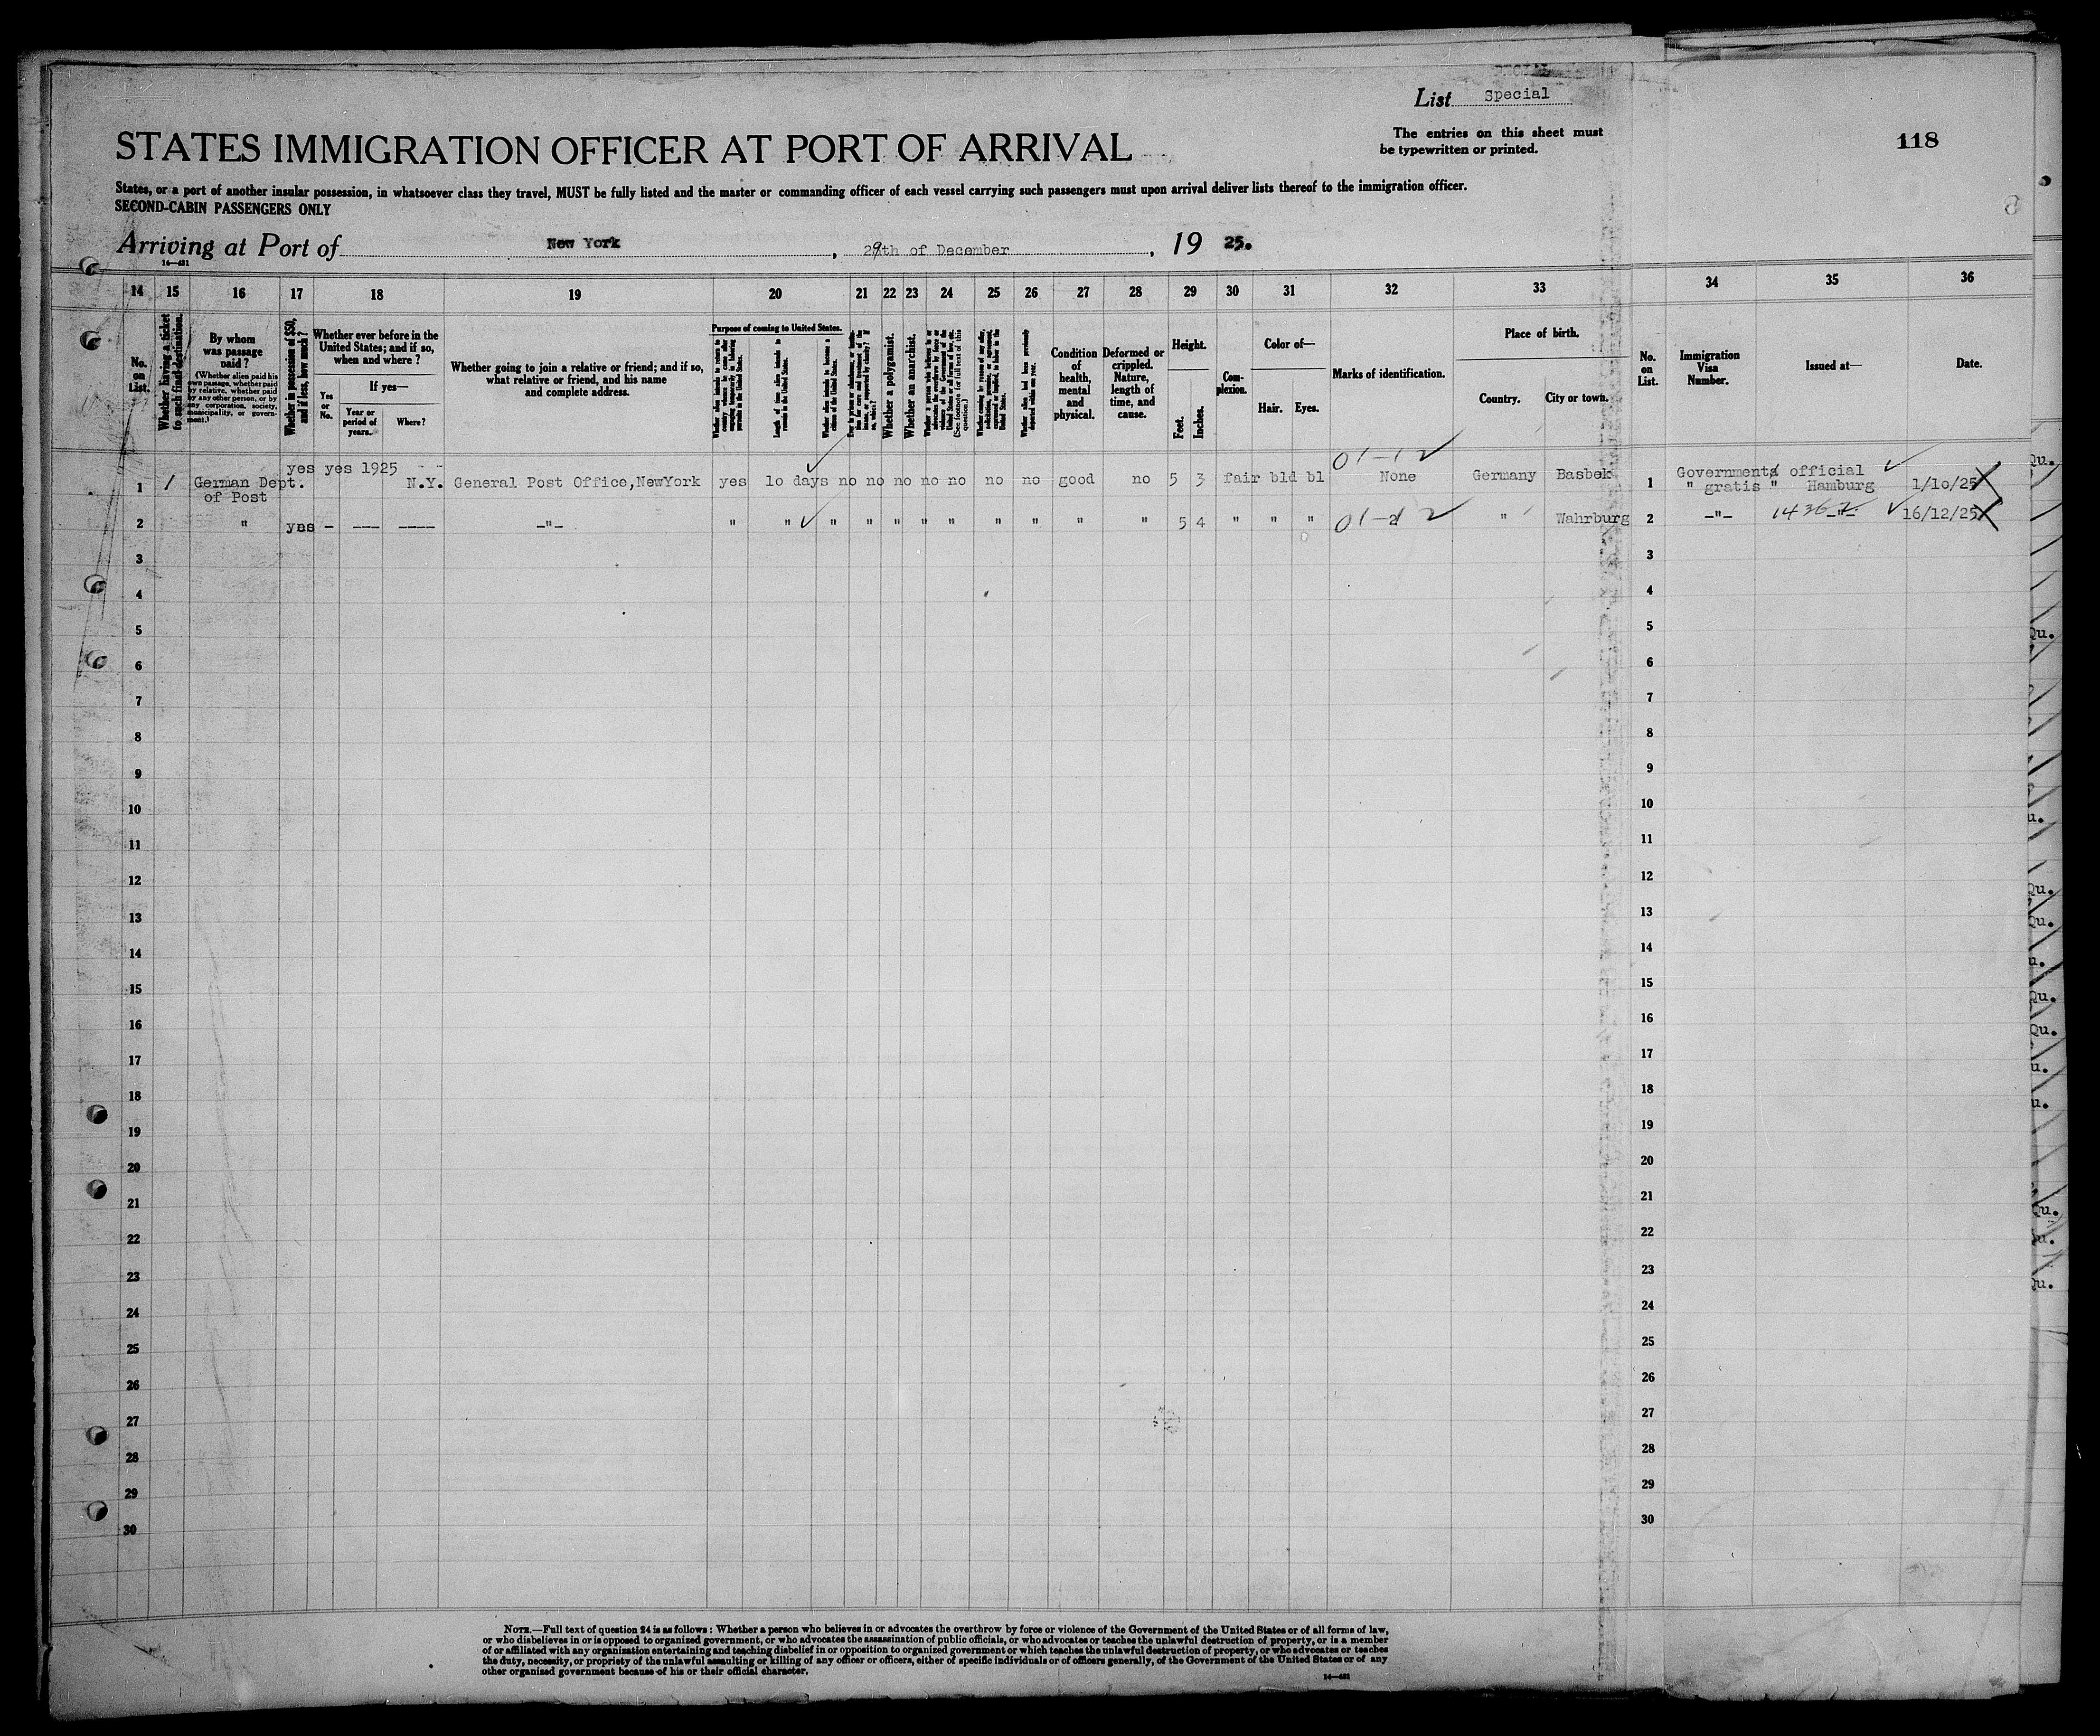 List Special
The entries on this sheet must
be typewritten or printed.
118
STATES IMMIGRATION OFFICER AT PORT OF ARRIVAL
States, or a port of another insular possession, in whatsoever class they travel, MUST be fully listed and the master or commanding officer of each vessel carrying such passengers must upon arrival deliver lists thereof to the immigration officer.
SECOND-CABIN PASSENGERS ONLY
Arriving at Port of New York, 29th of December, 19 25.
14—431
14 15 16 17 18 19 20 21 22 23 24 25 26 27 28 29 30 31 32 33 34 35 36
No. on List.
Whether having a ticket to such final destination.
By whom was passage paid?
(Whether alien paid his own passage, whether paid by relative, whether paid by any other person, or by any corporation, society, municipality, or government.)
Whether in possession of $50, and if less, how much?
Whether ever before in the United States; and if so, when and where?
Yes or No.
If yes—
Year or period of years.
Where?
Whether going to join a relative or friend; and if so, what relative or friend, and his name and complete address.
Purpose of coming to United States.
Length of time alien intends to remain in the United States.
Whether alien intends to become a citizen of the United States.
Whether a polygamist.
Whether an anarchist.
(See footnote for full text of this question.)
Condition of health, mental and physical.
Deformed or crippled. Nature, length of time, and cause.
Height.
Feet.
Inches.
Complexion.
Color of—
Hair.
Eyes.
Marks of identification.
Place of birth.
Country.
City or town.
No. on List.
Immigration Visa Number.
Issued at—
Date.
1 1 German Dept. of Post yes yes 1925 N.Y. General Post Office,NewYork yes 1o days no no no no no no no good no 5 3 fair bld bl None Germany Basbek 1 Governments official " gratis " Hamburg 1/1o/25
01-1
2 " yns - --- ---- -"- " " " " " " " " " " " " 5 4 " " " " Wahrburg 2 -"- -"- 16/12/25
3 3
4 4
5 5
6 6
7 7
8 8
9 9
10 10
11 11
12 12
13 13
14 14
15 15
16 16
17 17
18 18
19 19
20 20
21 21
22 22
23 23
24 24
25 25
26 26
27 27
28 28
29 29
30 30
NOTE.—Full text of question 24 is as follows: Whether a person who believes in or advocates the overthrow by force or violence of the Government of the United States or of all forms of law,
or who disbelieves in or is opposed to organized government, or who advocates the assassination of public officials, or who advocates or teaches the unlawful destruction of property, or is a member
of or affiliated with any organization entertaining and teaching disbelief in or opposition to organized government or which teaches the unlawful destruction of property, or who advocates or teaches
the duty, necessity, or propriety of the unlawful assaulting or killing of any officer or officers, either of specific individuals or of officers generally, of the Government of the United States or of any
other organized government because of his or their official character.
14—431